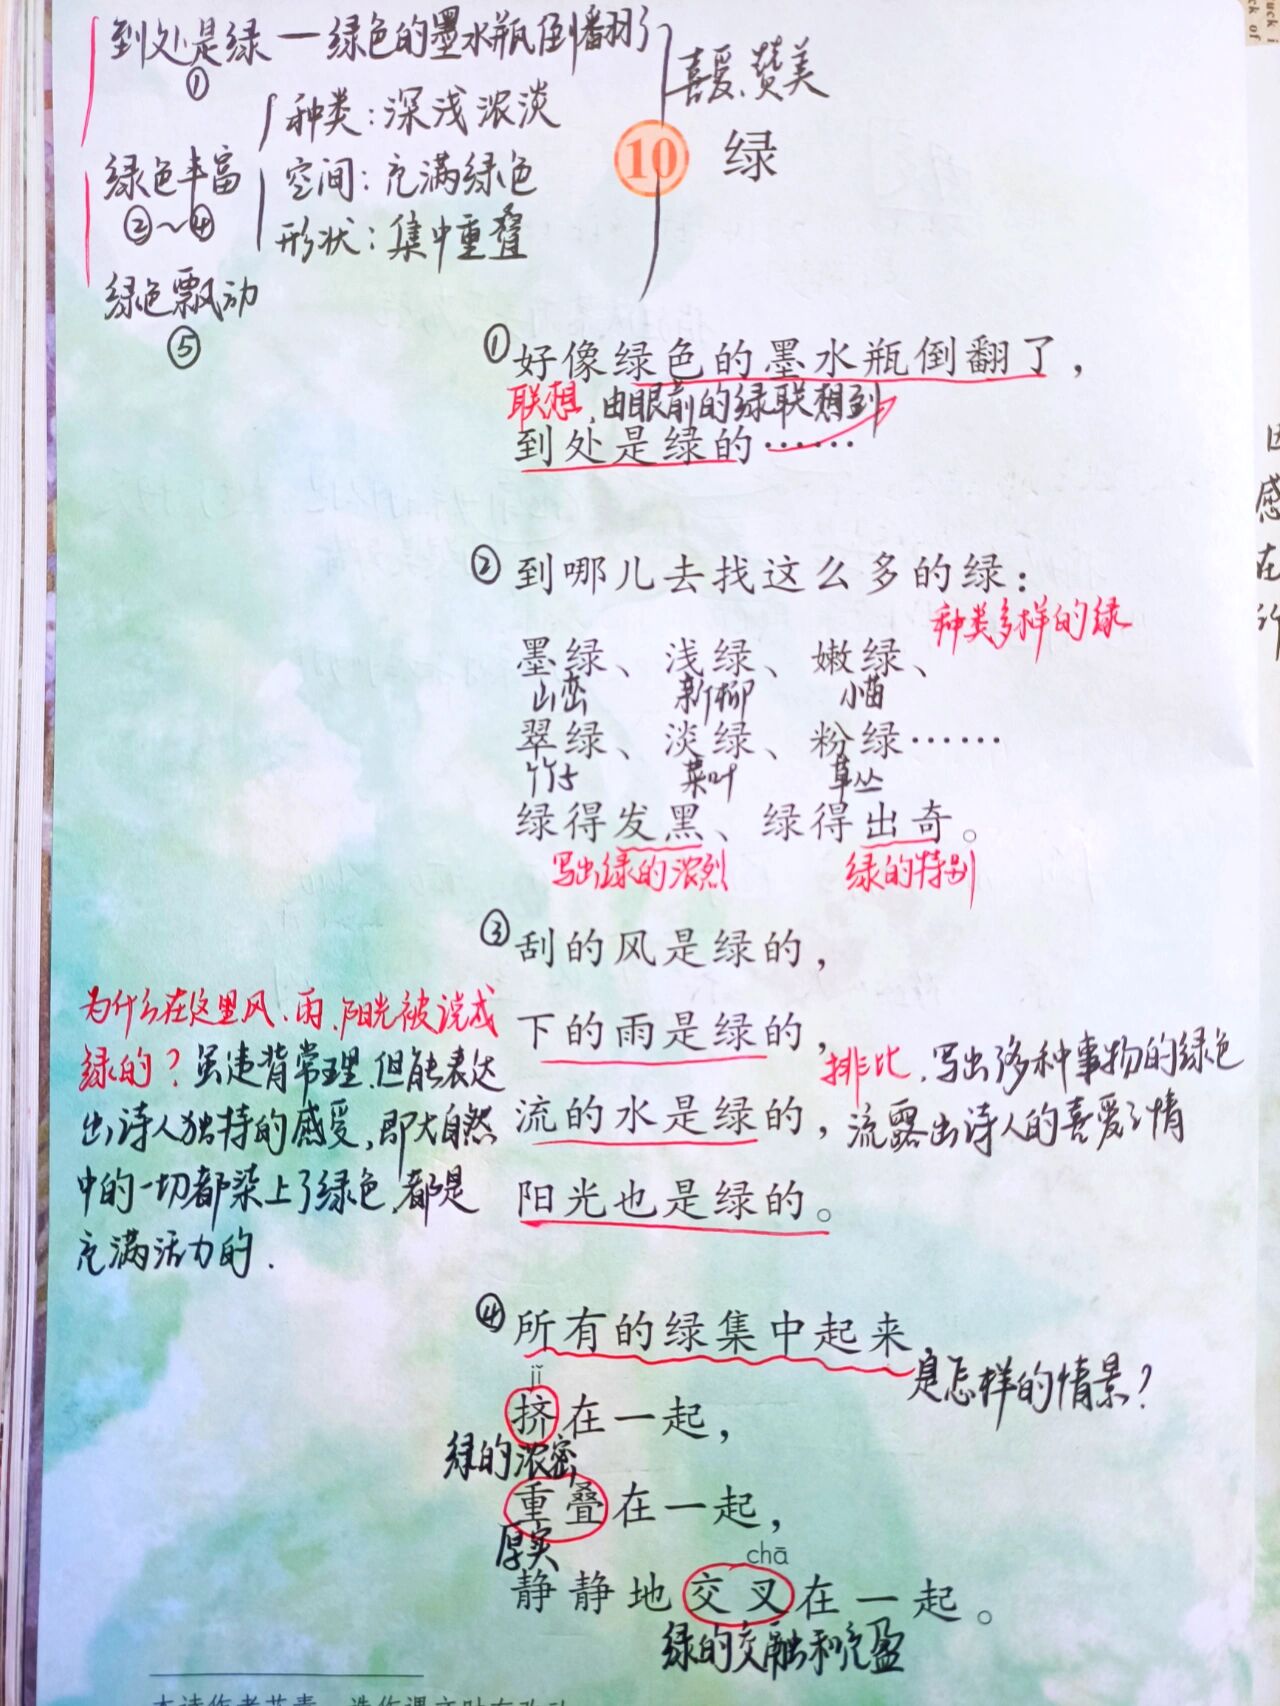 到处是绿—绿色的墨水瓶倒翻了
①
喜爱、赞美
种类:深浅浓淡
10 绿
绿色丰富
②~④
空间:充满绿色
形状:集中重叠
绿色飘动
⑤
①好像绿色的墨水瓶倒翻了，
联想，由眼前的绿联想到
到处是绿的……
②到哪儿去找这么多的绿：
种类多样的绿
墨绿、浅绿、嫩绿、
山峦 新柳 小苗
翠绿、淡绿、粉绿……
竹子 菜叶 草丛
绿得发黑、绿得出奇。
写出绿的浓烈 绿的特别
③刮的风是绿的，
下的雨是绿的，
流的水是绿的，
阳光也是绿的。
为什么在这里风、雨、阳光被说成
绿的？虽违背常理，但能表达
出诗人独特的感受，即大自然
中的一切都染上了绿色，都是
充满活力的.
排比，写出多种事物的绿色
流露出诗人的喜爱之情
④所有的绿集中起来，
是怎样的情景?
jǐ
挤在一起，
绿的浓密
重叠在一起，
厚实
chā
静静地交叉在一起。
绿的交融和充盈
uck i
ck of
感
在